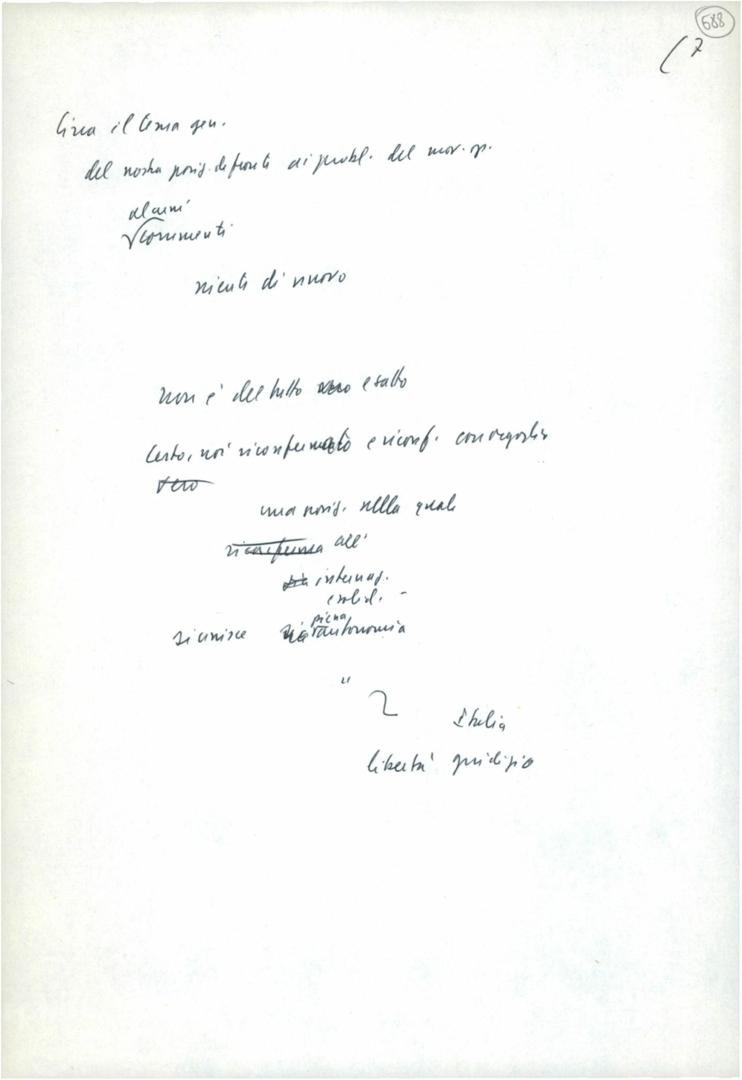 588
(7
Circa il tema gen.
del nostra posiz. di fronte ai probl. del mov. op.
alcuni
√commenti
niente di nuovo
non è del tutto vero esatto
Certo, noi riconfermato e riconf. con orgoglio
vero
una posiz. nella quale
riconferma all'
internaz.
e sol.
si unisce piena
autonomia
"
Italia
libertà giudizio